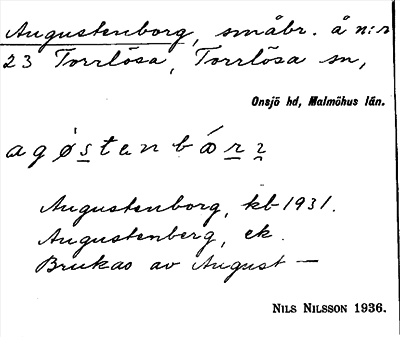 Augustenborg, småbr. å n:r
23 Torrlösa, Torrlösa sn,
Onsjö hd, Malmöhus län.
Augustenborg, kb 1931.
Augustenberg, ek.
Brukas av August —
NILS NILSSON 1936.